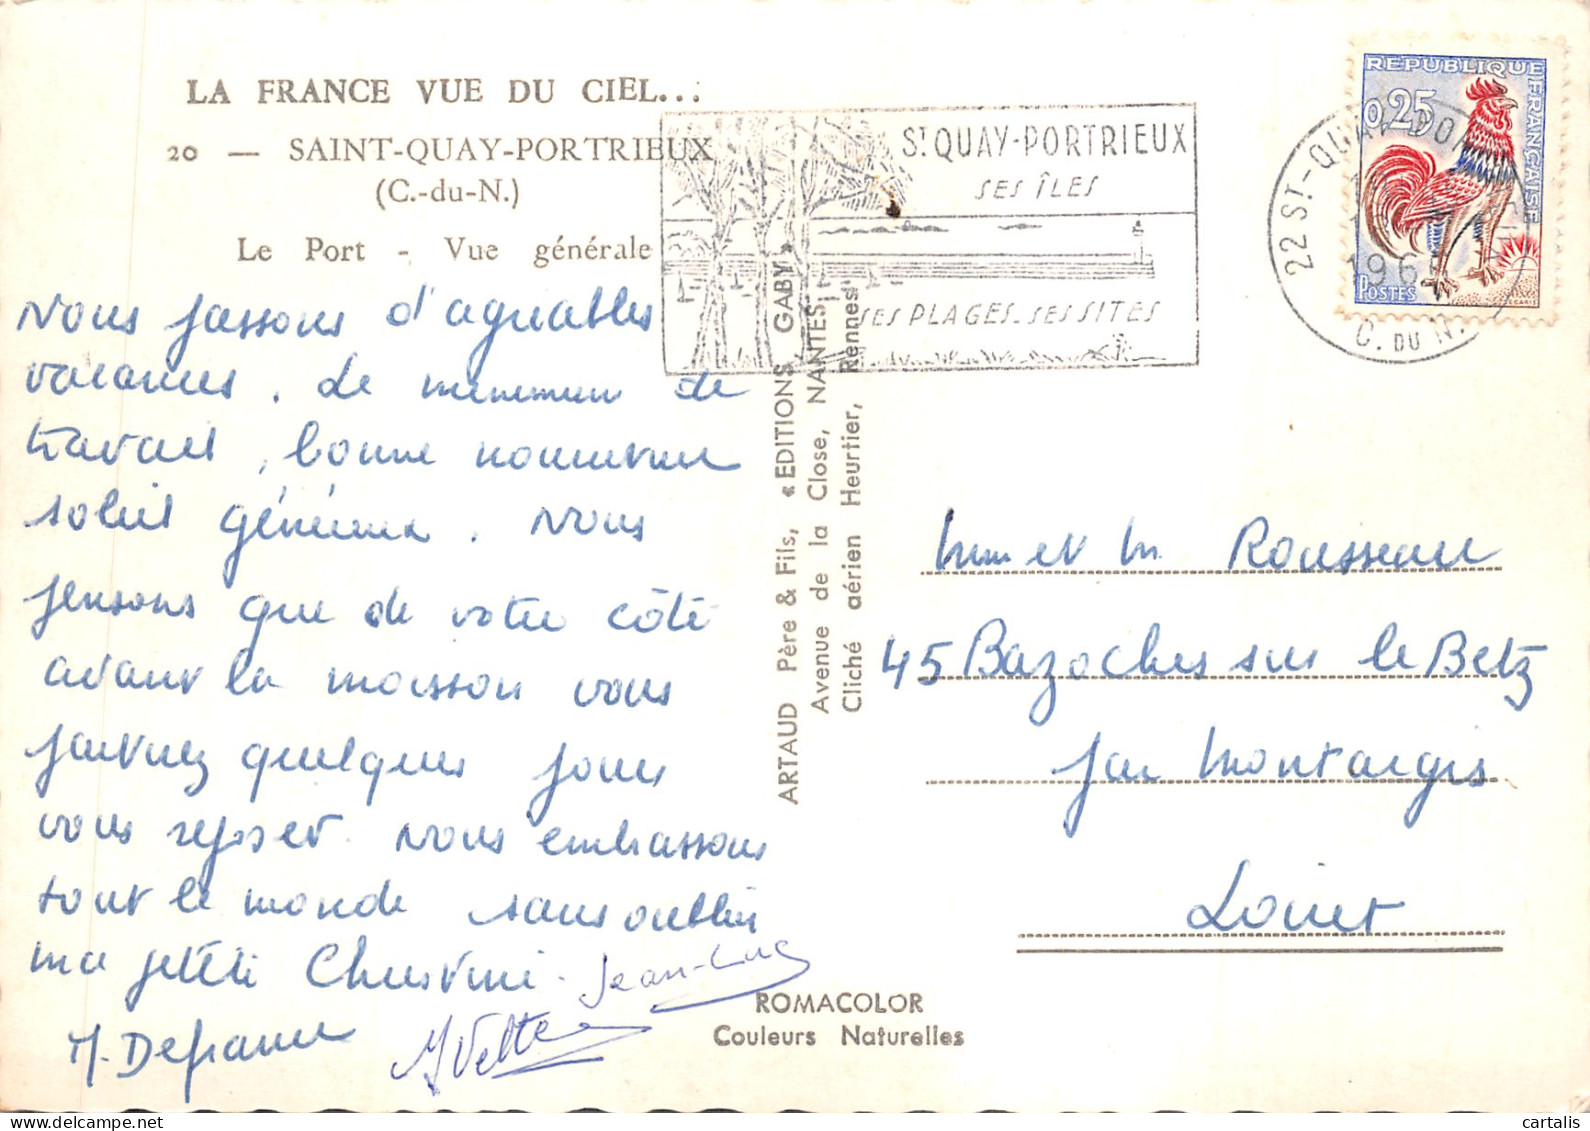 LA FRANCE VUE DU CIEL...
20 — SAINT-QUAY-PORTRIEUX
(C.-du-N.)
Le Port - Vue générale
Nous passons d'agréables
vacances. Le minimum de
travail, bonne nourriture
soleil généreux. Nous
pensons que de votre côté
avant la moisson vous
pouvez quelques jours
vous reposer. Nous embrassons
tout le monde sans oublier
ma petite Christine.
Jean-Luc
M. Defrance
Yvette
ARTAUD Père & Fils, « EDITIONS GABY »
Avenue de la Close, NANTES
Cliché aérien Heurtier, Rennes
ROMACOLOR
Couleurs Naturelles
ST QUAY-PORTRIEUX
SES ÎLES
SES PLAGES_SES SITES
REPUBLIQUE FRANÇAISE
0,25
POSTES
22 ST-QUAY-PORTRIEUX
C. DU N.
Mme et M. Rousseau
45 Bazoches sur le Betz
par Montargis
Loiret
cartalis
delcampe.net